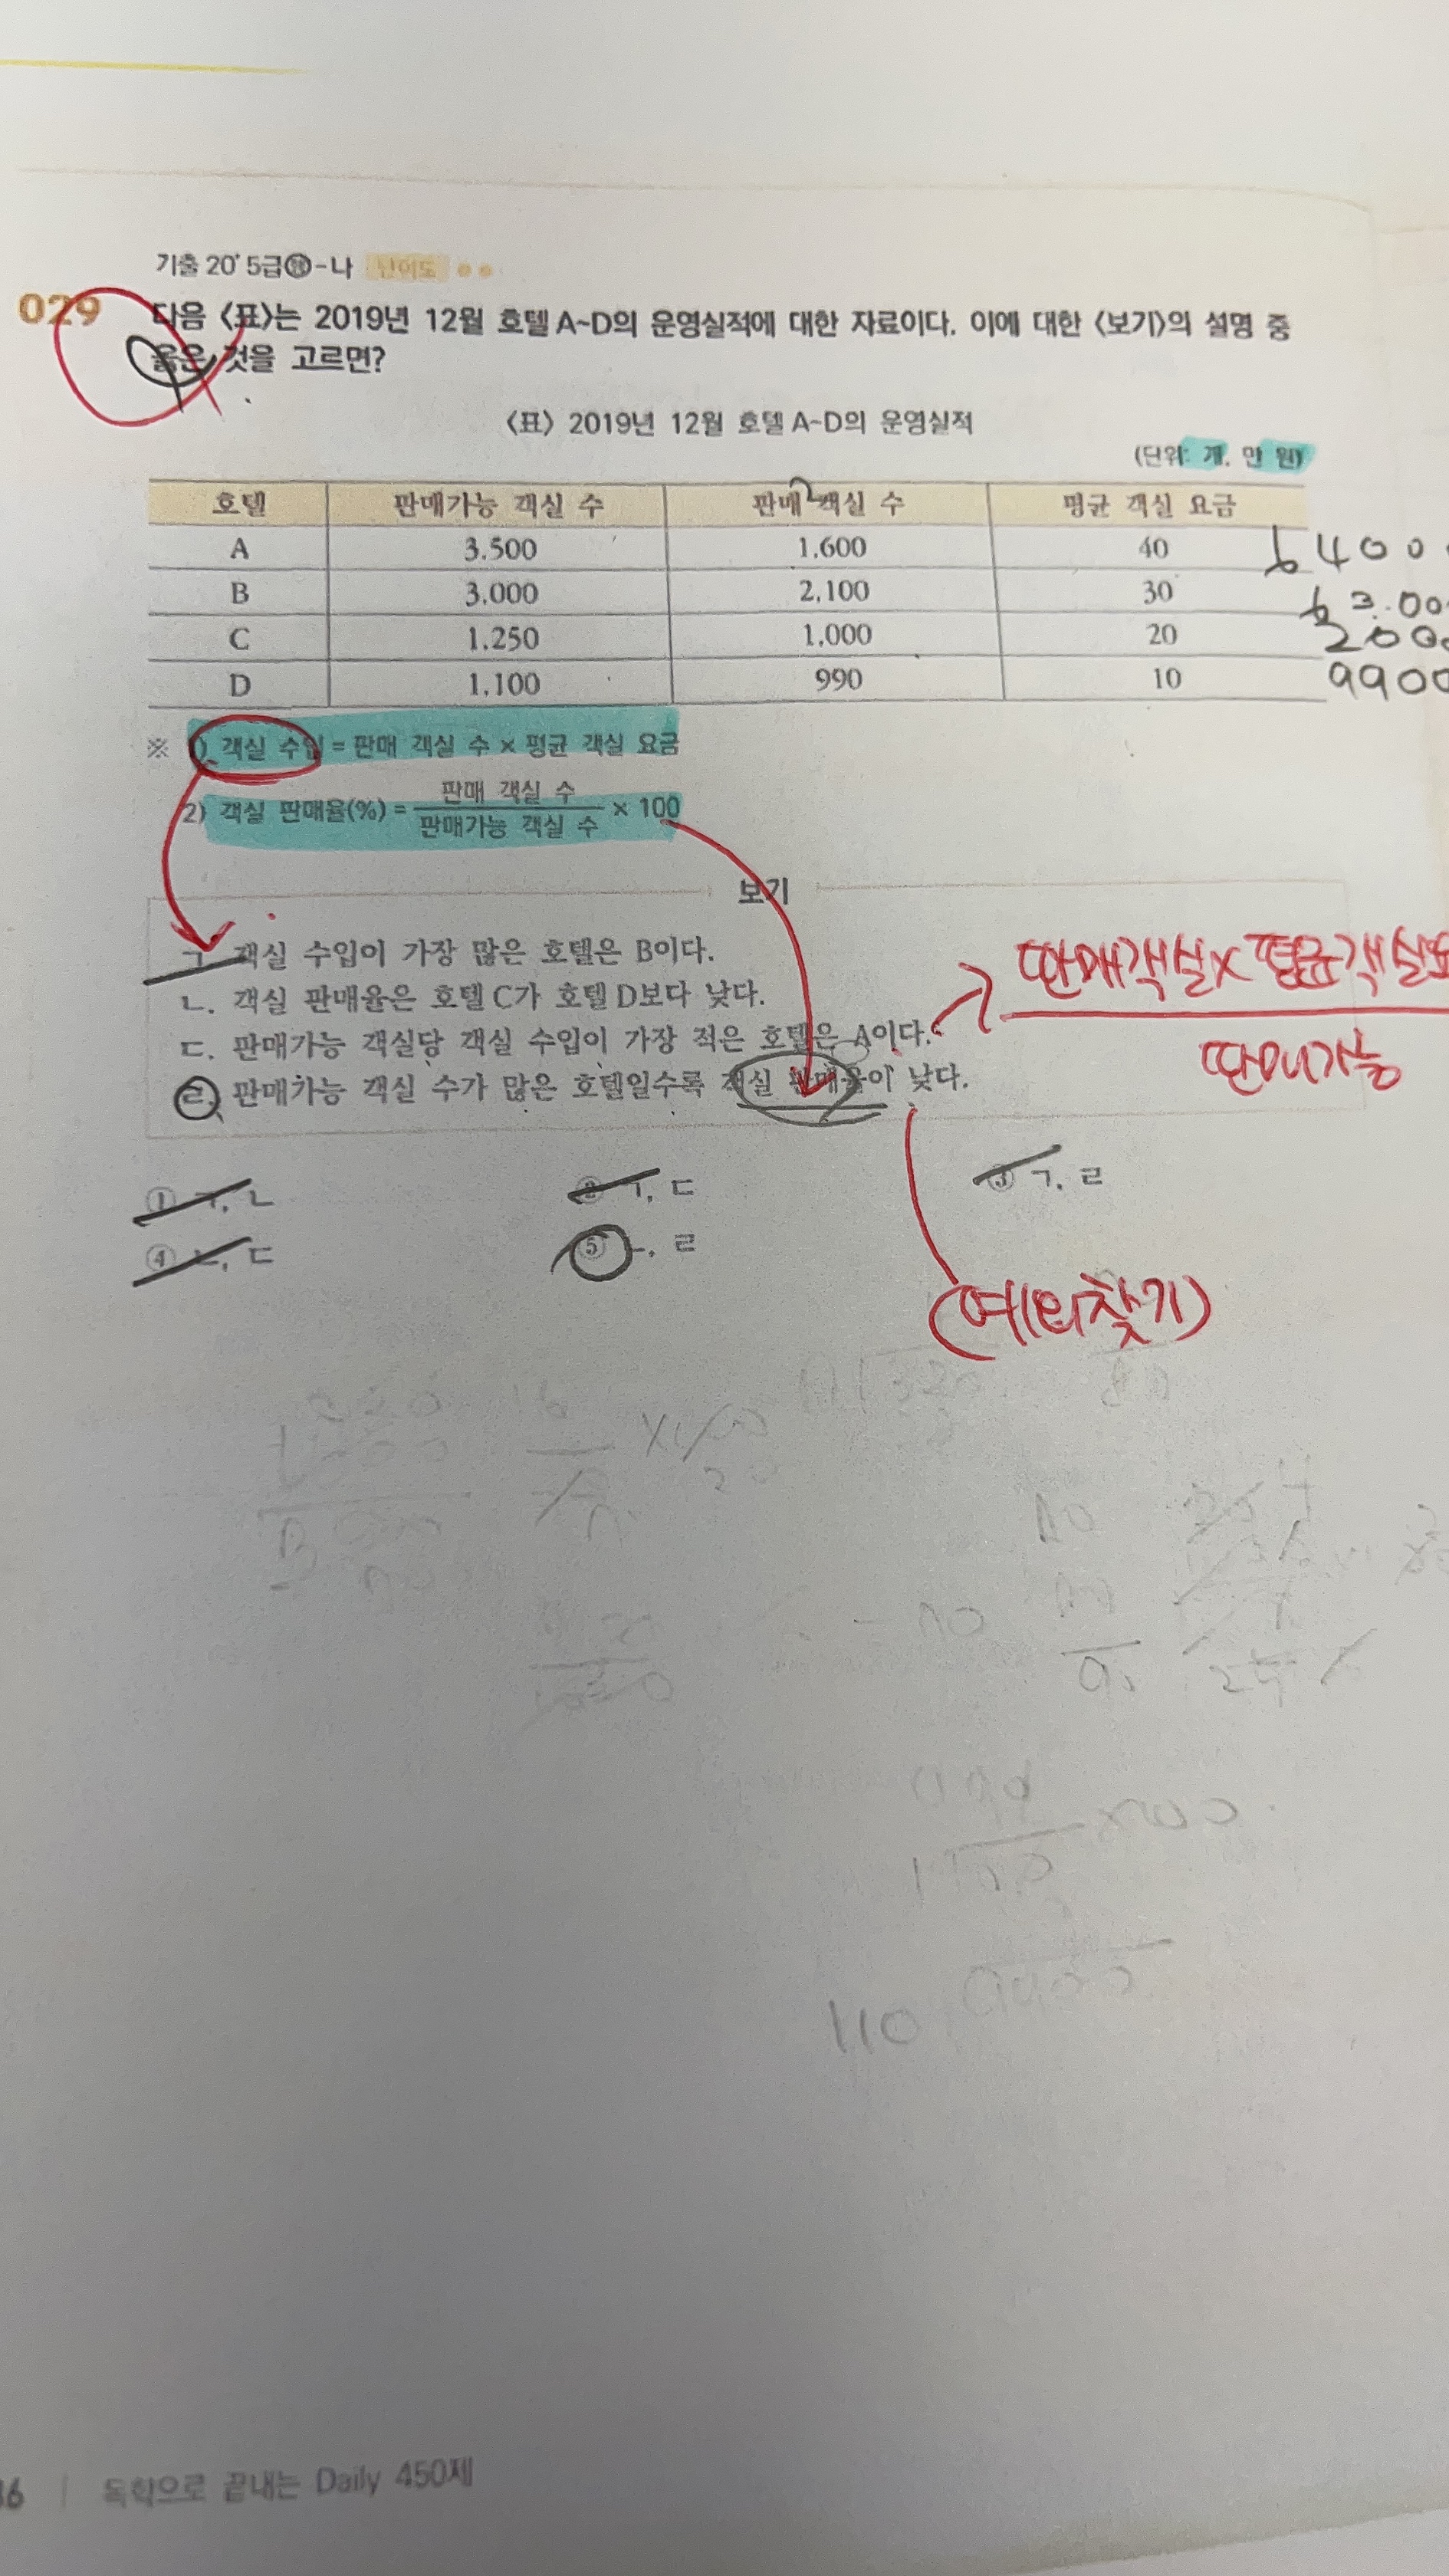 기출 20' 5급㉾-나 난이도 ●●
029 다음 〈표〉는 2019년 12월 호텔 A~D의 운영실적에 대한 자료이다. 이에 대한 〈보기〉의 설명 중
옳은 것을 고르면?
〈표〉 2019년 12월 호텔 A~D의 운영실적
(단위: 개, 만 원)
호텔 판매가능 객실 수 판매 객실 수 평균 객실 요금
A 3,500 1,600 40 6400
B 3,000 2,100 30 63.00
C 1,250 1,000 20 2000
D 1,100 990 10 9900
※ 1) 객실 수입 = 판매 객실 수 × 평균 객실 요금
2) 객실 판매율(%) = 판매 객실 수 / 판매가능 객실 수 × 100
보기
ㄱ. 객실 수입이 가장 많은 호텔은 B이다.
ㄴ. 객실 판매율은 호텔 C가 호텔 D보다 낮다.
ㄷ. 판매가능 객실당 객실 수입이 가장 적은 호텔은 A이다.
ㄹ. 판매가능 객실 수가 많은 호텔일수록 객실 판매율이 낮다.
판매객실×평균객실요
판매가능
① ㄱ, ㄴ ② ㄱ, ㄷ ③ ㄱ, ㄹ
④ ㄴ, ㄷ ⑤ ㄴ, ㄹ
(예외찾기)
110
36 | 독학으로 끝내는 Daily 450제